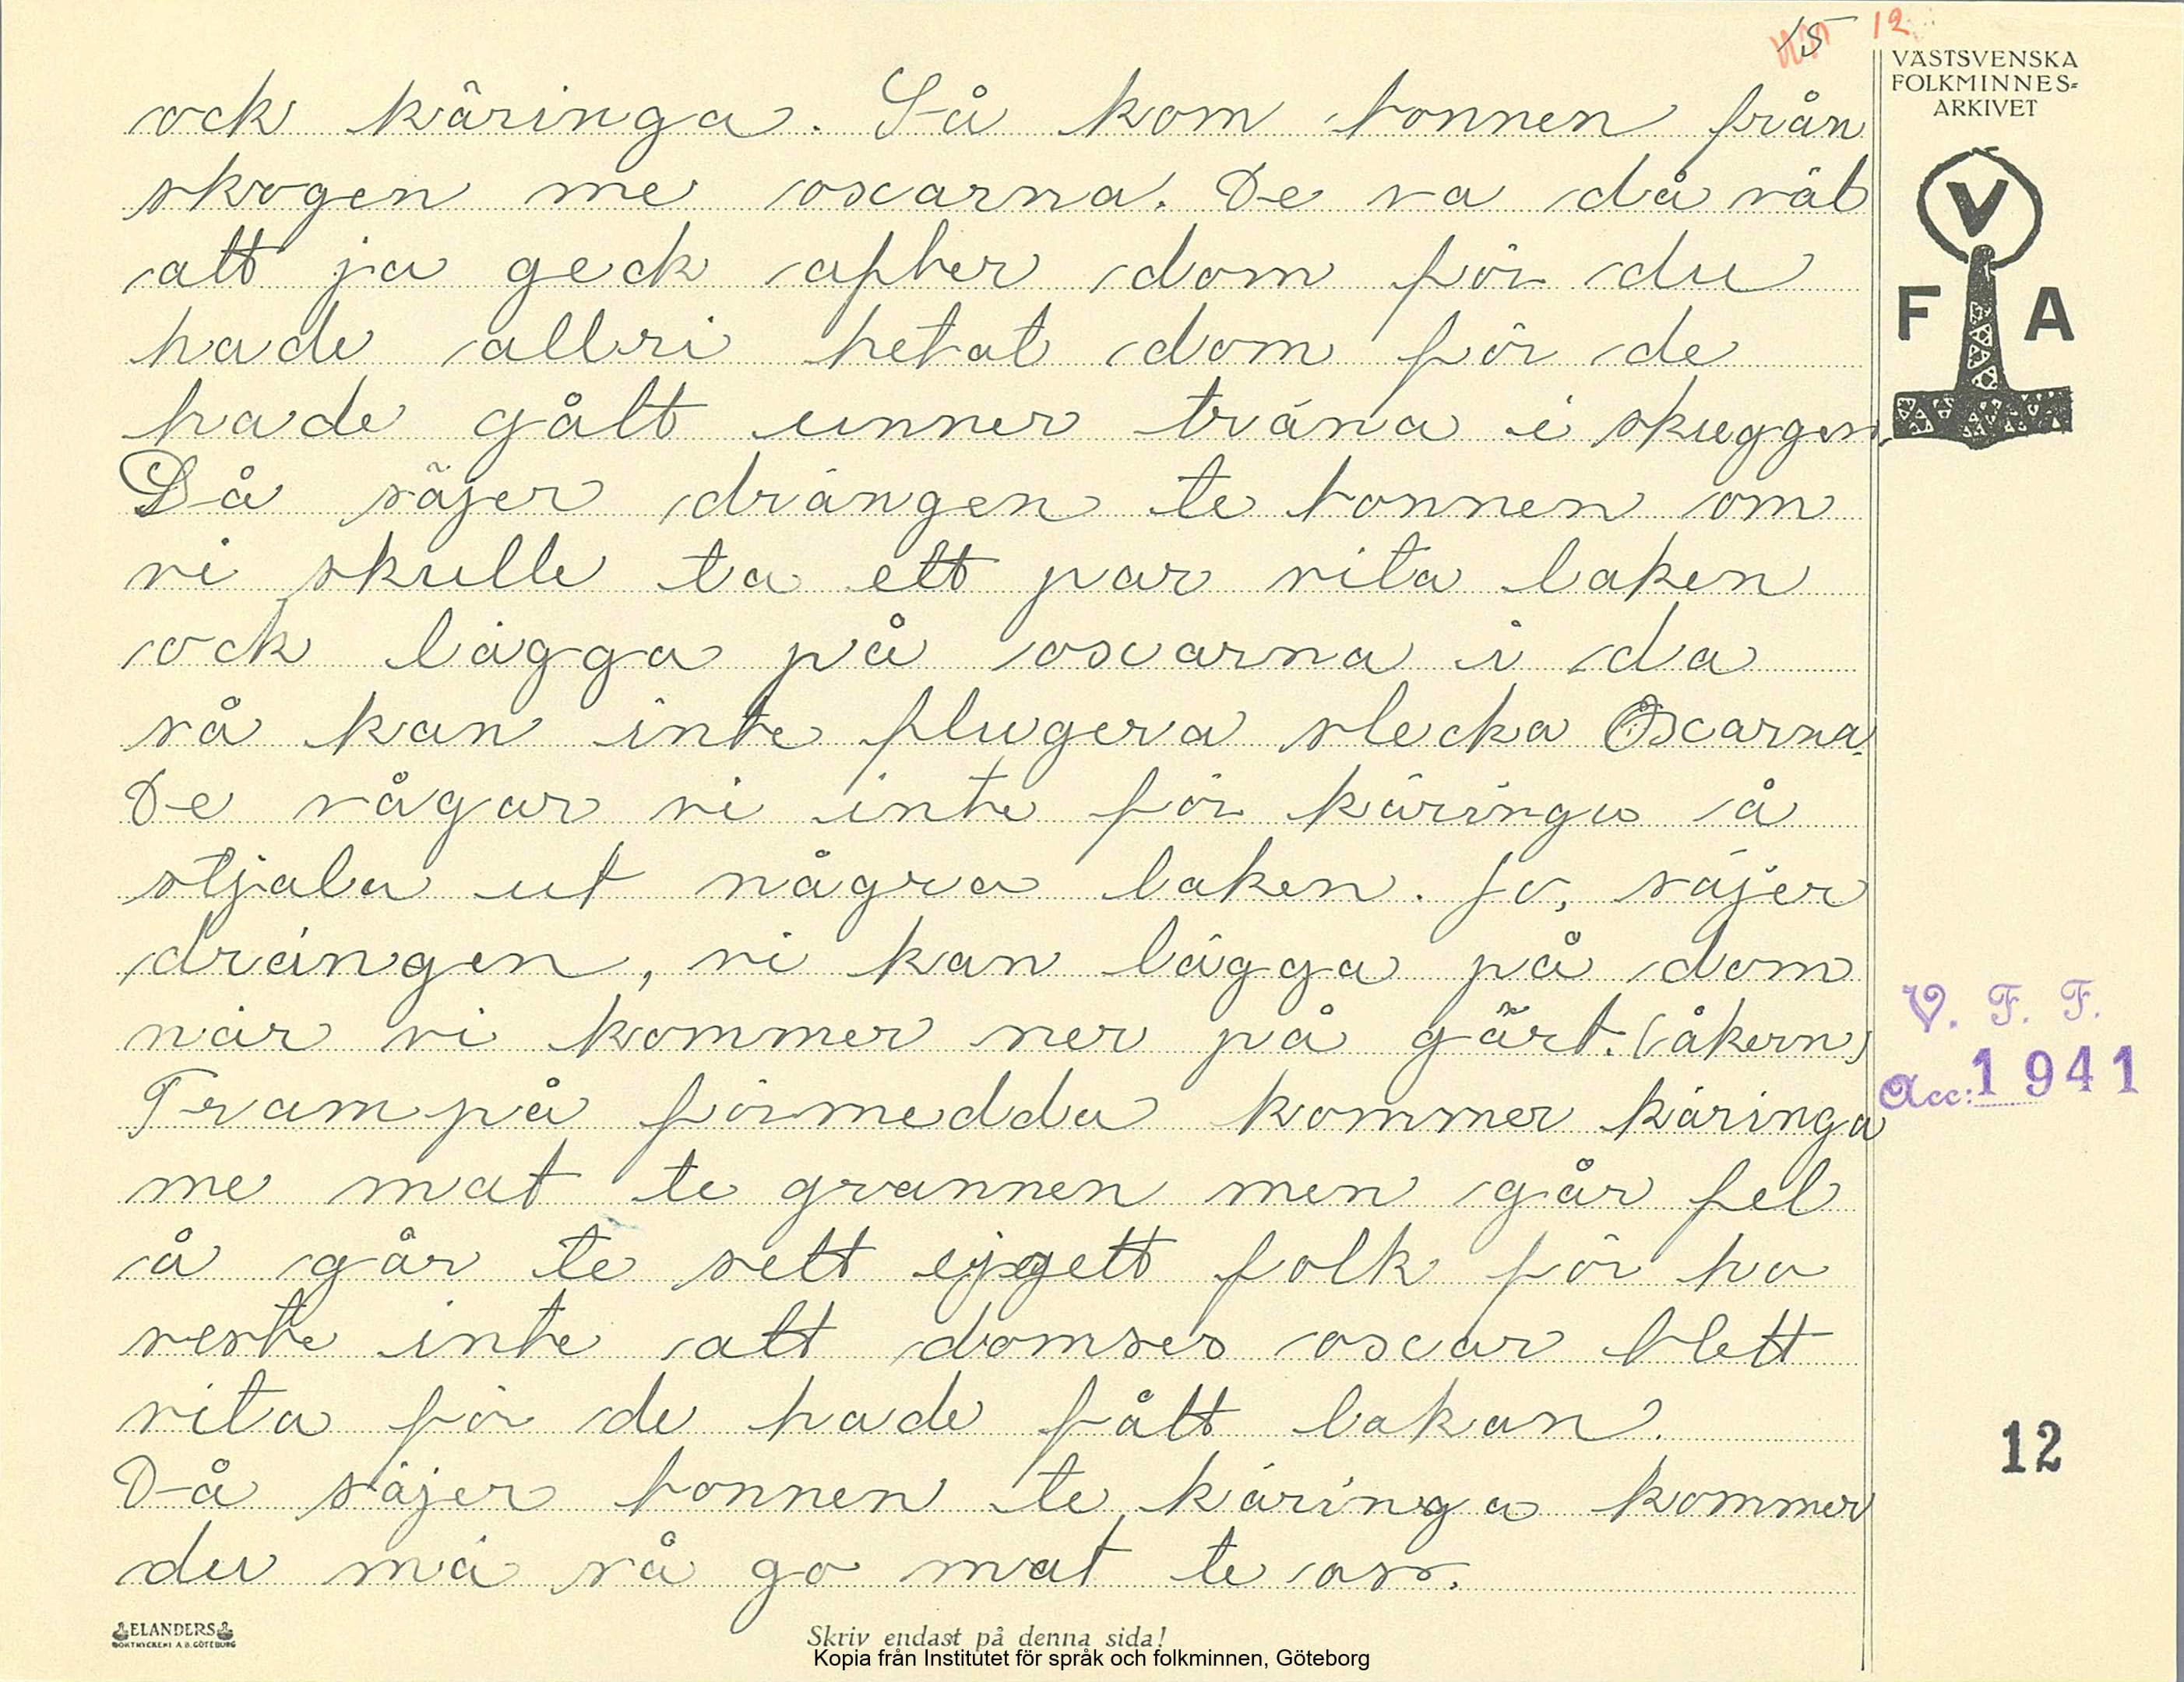 15 12
VÄSTSVENSKA
FOLKMINNES-
ARKIVET
V
F A
ock käringa. Så kom bonnen från
skogen me oxarna. De va då väl
att ja geck after dom för du
hade allri hetat dom för de
hade gått unner träna i skuggen.
Då säjer drängen te bonnen om
vi skulle ta ett par vita laken
ock lägga på oxarna i da
så kan inte flugera stecka Oxarna.
De vågar vi inte för käringa å
stjala ut några laken. Jo, säjer
drängen, vi kan lägga på dom
när vi kommer ner på gärt. (åkern)
Fram på förmedda kommer käringa
me mat te grannen men går fel
å går te sett ejgett folk för ho
veste inte att domses oxar blett
vita för de hade fått lakan.
Då säjer bonnen te käringa kommer
du mä så go mat te oss.
V. F. F.
Acc: 1941
12
ELANDERS
BOKTRYCKERI A.B. GÖTEBORG
Skriv endast på denna sida!
Kopia från Institutet för språk och folkminnen, Göteborg